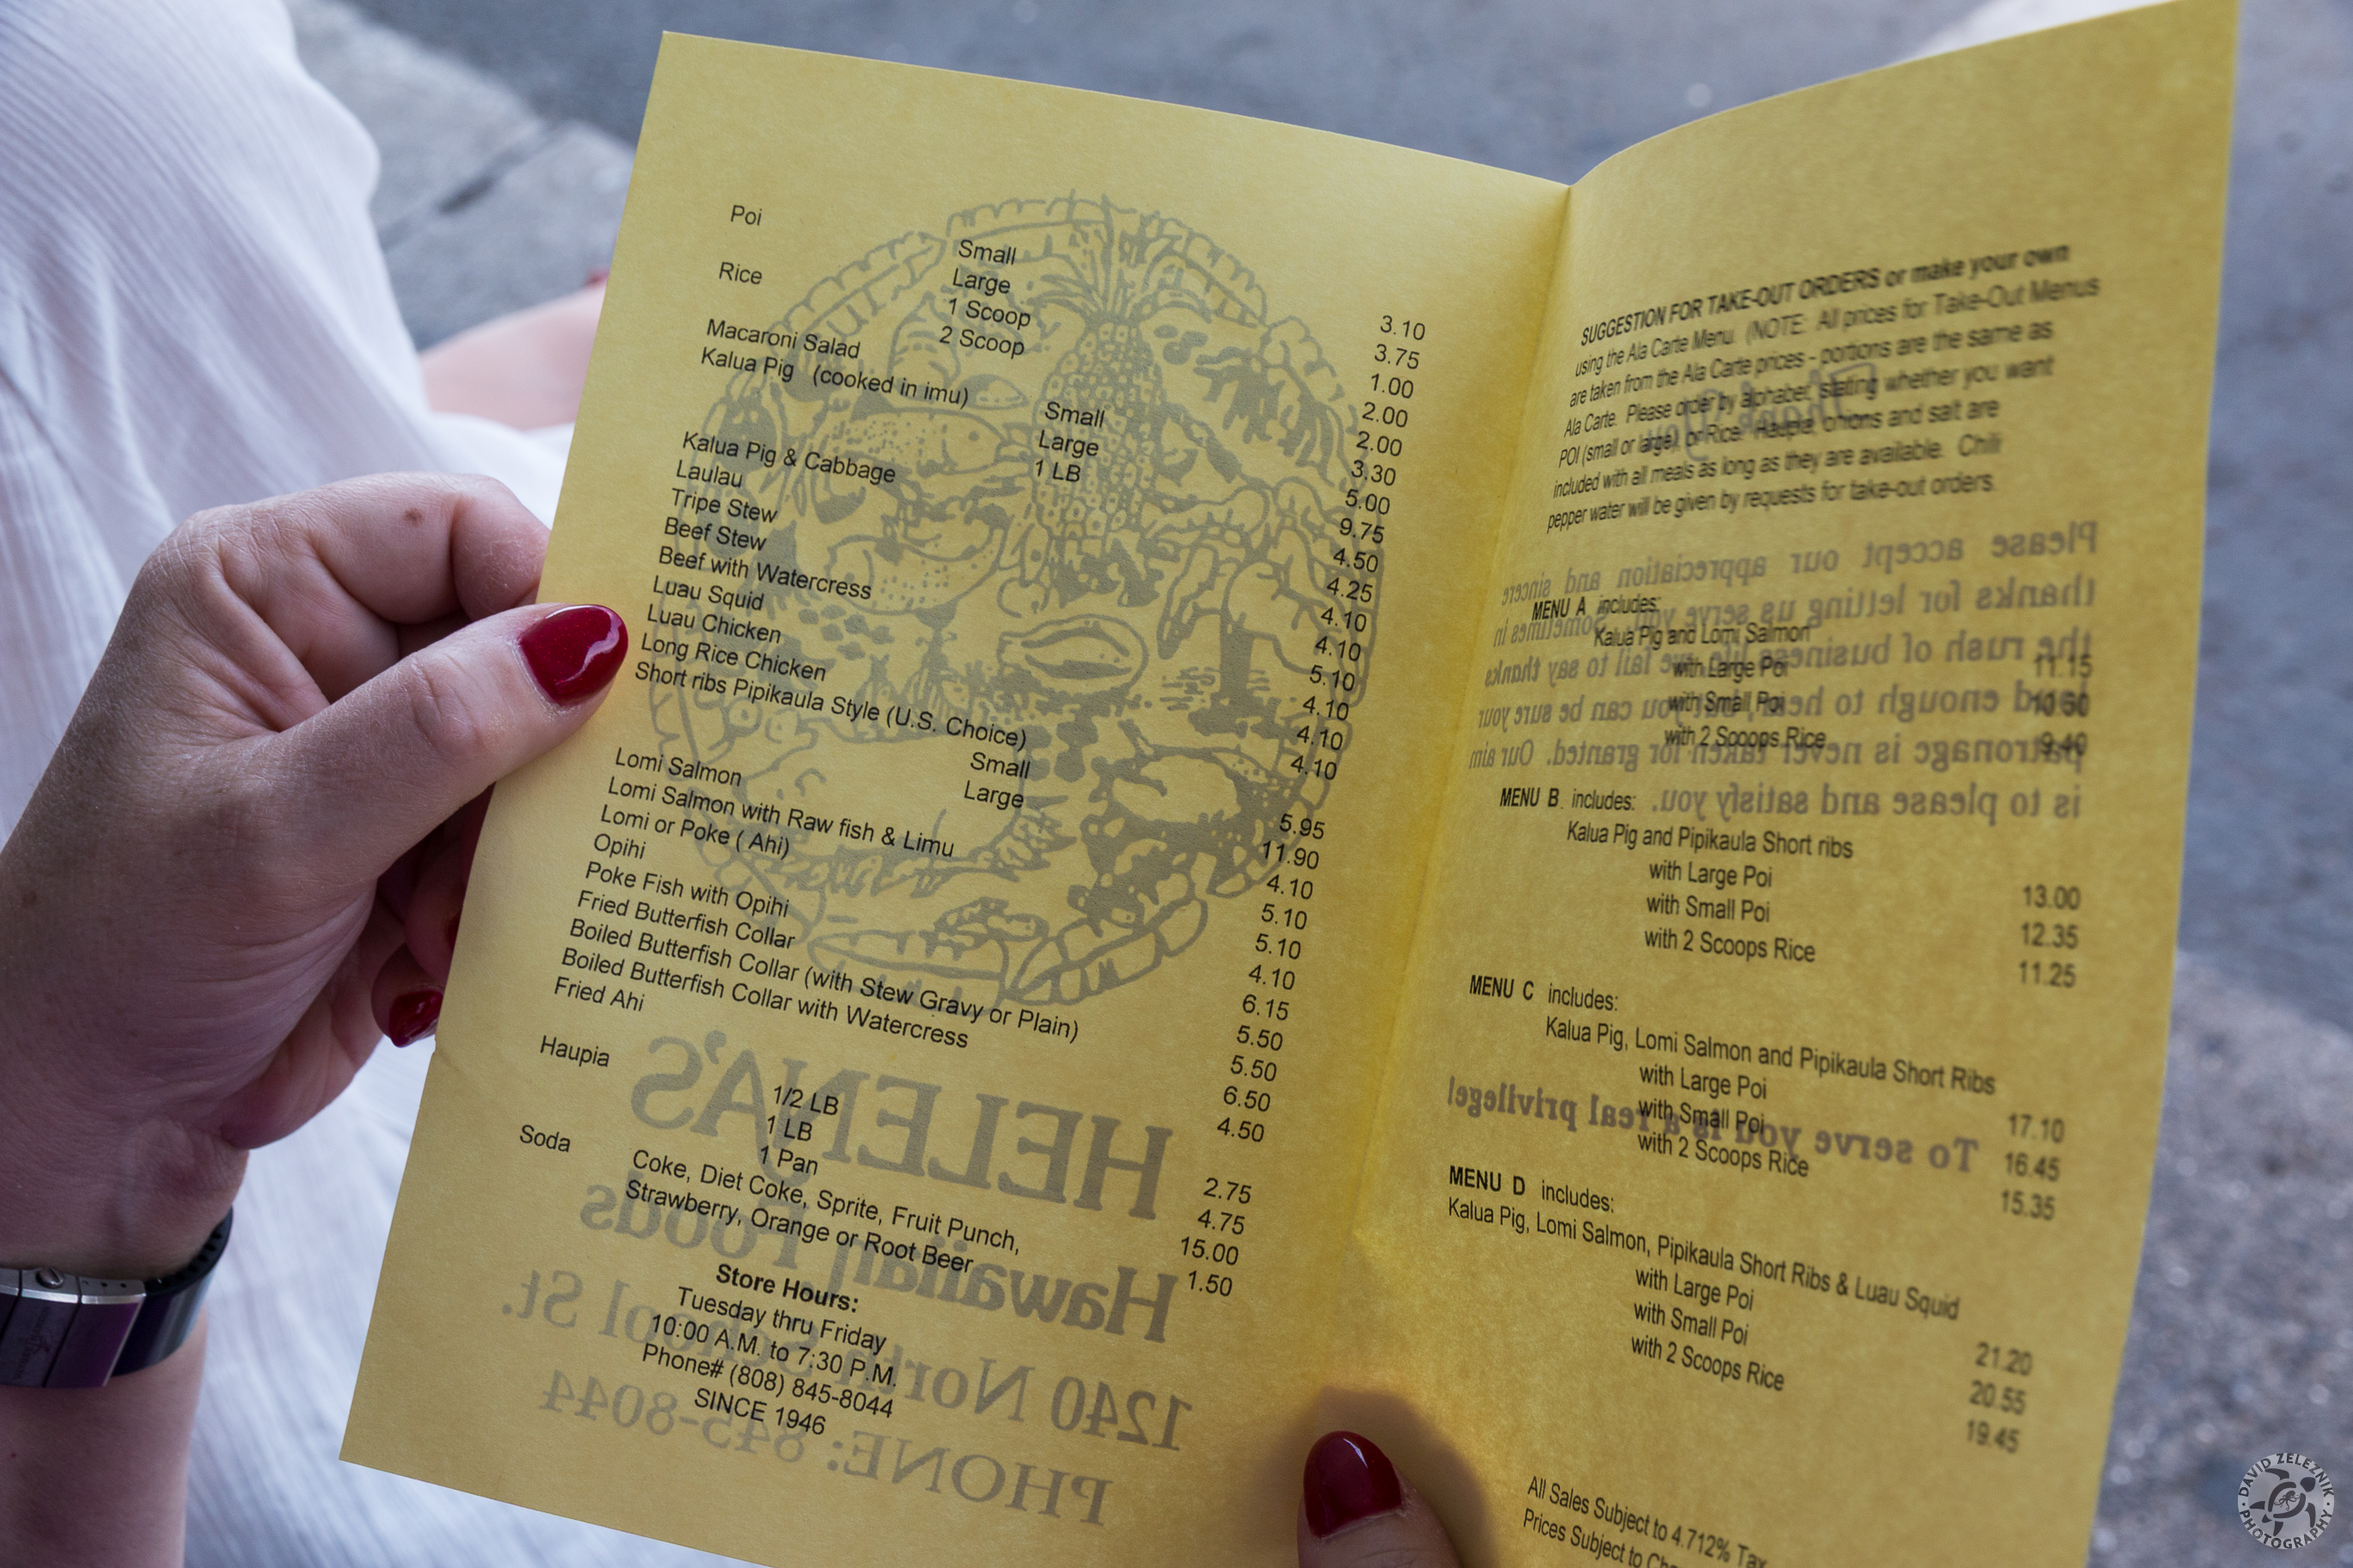 Poi
Small 3.10
Large 3.75
Rice 1 Scoop 1.00
2 Scoop 2.00
Macaroni Salad 2.00
Kalua Pig (cooked in imu)
Small 3.30
Large 5.00
1 LB 9.75
Kalua Pig & Cabbage 4.50
Laulau 4.25
Tripe Stew 4.10
Beef Stew 4.10
Beef with Watercress 5.10
Luau Squid 4.10
Luau Chicken 4.10
Long Rice Chicken 4.10
Short ribs Pipikaula Style (U.S. Choice)
Small 5.95
Large 11.90
Lomi Salmon 4.10
Lomi Salmon with Raw fish & Limu 5.10
Lomi or Poke ( Ahi) 5.10
Opihi 4.10
Poke Fish with Opihi 6.15
Fried Butterfish Collar 5.50
Boiled Butterfish Collar (with Stew Gravy or Plain) 5.50
Boiled Butterfish Collar with Watercress 6.50
Fried Ahi 4.50
Haupia
1/2 LB 2.75
1 LB 4.75
1 Pan 15.00
Soda Coke, Diet Coke, Sprite, Fruit Punch, 1.50
Strawberry, Orange or Root Beer
Store Hours:
Tuesday thru Friday
10:00 A.M. to 7:30 P.M.
Phone# (808) 845-8044
SINCE 1946
HELENA'S
Hawaiian Foods
1240 North School St.
PHONE: 845-8044
SUGGESTION FOR TAKE-OUT ORDERS or make your own
using the Ala Carte Menu. (NOTE: All prices for Take-Out Menus
are taken from the Ala Carte prices - portions are the same as
Ala Carte. Please order by alphabet, stating whether you want
POI (small or large) or Rice. Haupia, onions and salt are
included with all meals as long as they are available. Chili
pepper water will be given by requests for take-out orders.
MENU A includes:
Kalua Pig and Lomi Salmon
with Large Poi 11.15
with Small Poi 10.50
with 2 Scoops Rice 9.40
MENU B includes:
Kalua Pig and Pipikaula Short ribs
with Large Poi 13.00
with Small Poi 12.35
with 2 Scoops Rice 11.25
MENU C includes:
Kalua Pig, Lomi Salmon and Pipikaula Short Ribs
with Large Poi 17.10
with Small Poi 16.45
with 2 Scoops Rice 15.35
MENU D includes:
Kalua Pig, Lomi Salmon, Pipikaula Short Ribs & Luau Squid
with Large Poi 21.20
with Small Poi 20.55
with 2 Scoops Rice 19.45
All Sales Subject to 4.712% Tax
Prices Subject to
Thank You
Please accept our appreciation and sincere
thanks for letting us serve you. Sometimes in
the rush of business life, we fail to say thanks
loud enough to hear, but you can be sure your
patronage is never taken for granted. Our aim
is to please and satisfy you.
To serve you is a real privilege!
DAVID ZELEZNIK
PHOTOGRAPHY